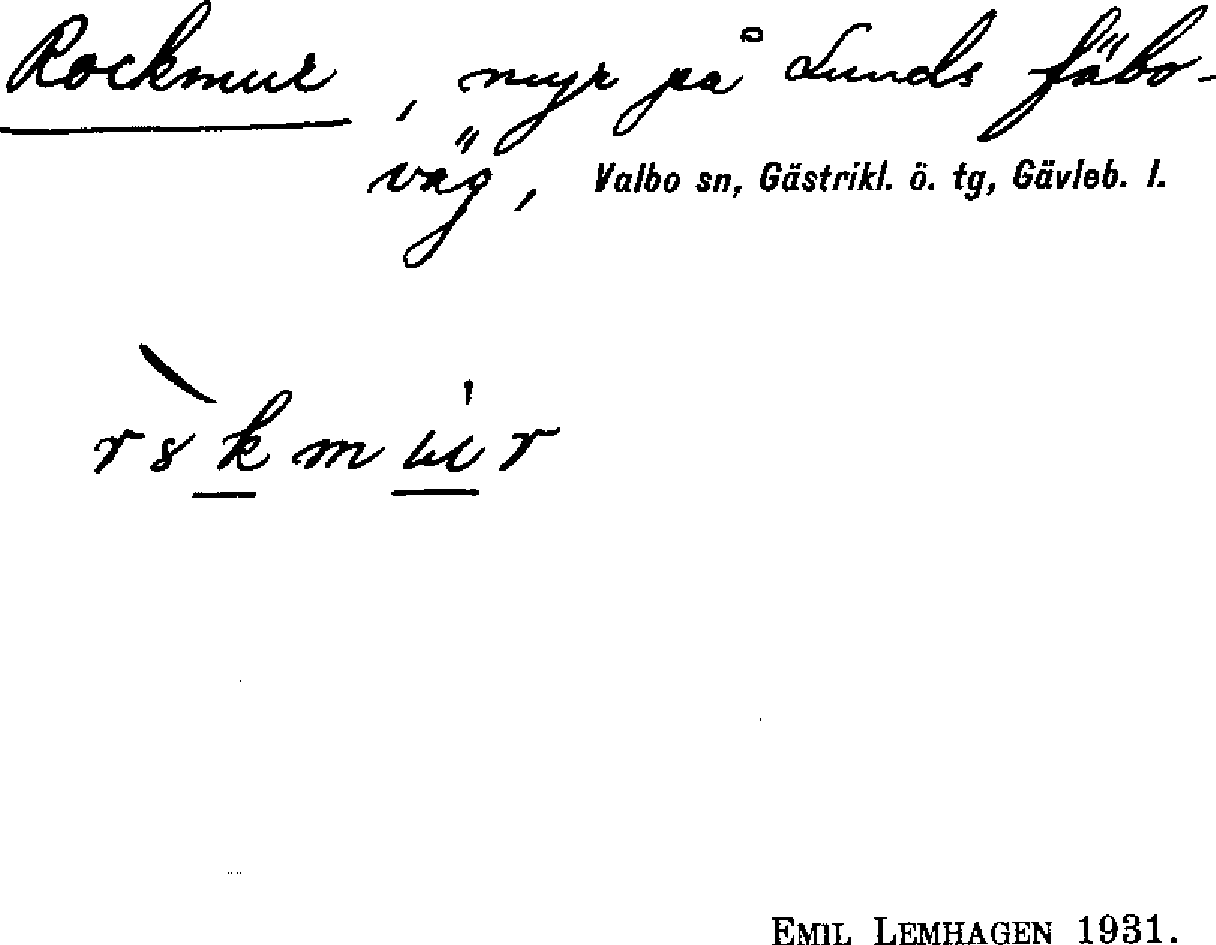 Rockmur, myr på Lunds fäbo-
väg, Valbo sn, Gästrikl. ö. tg, Gävleb. l.
EMIL LEMHAGEN 1931.